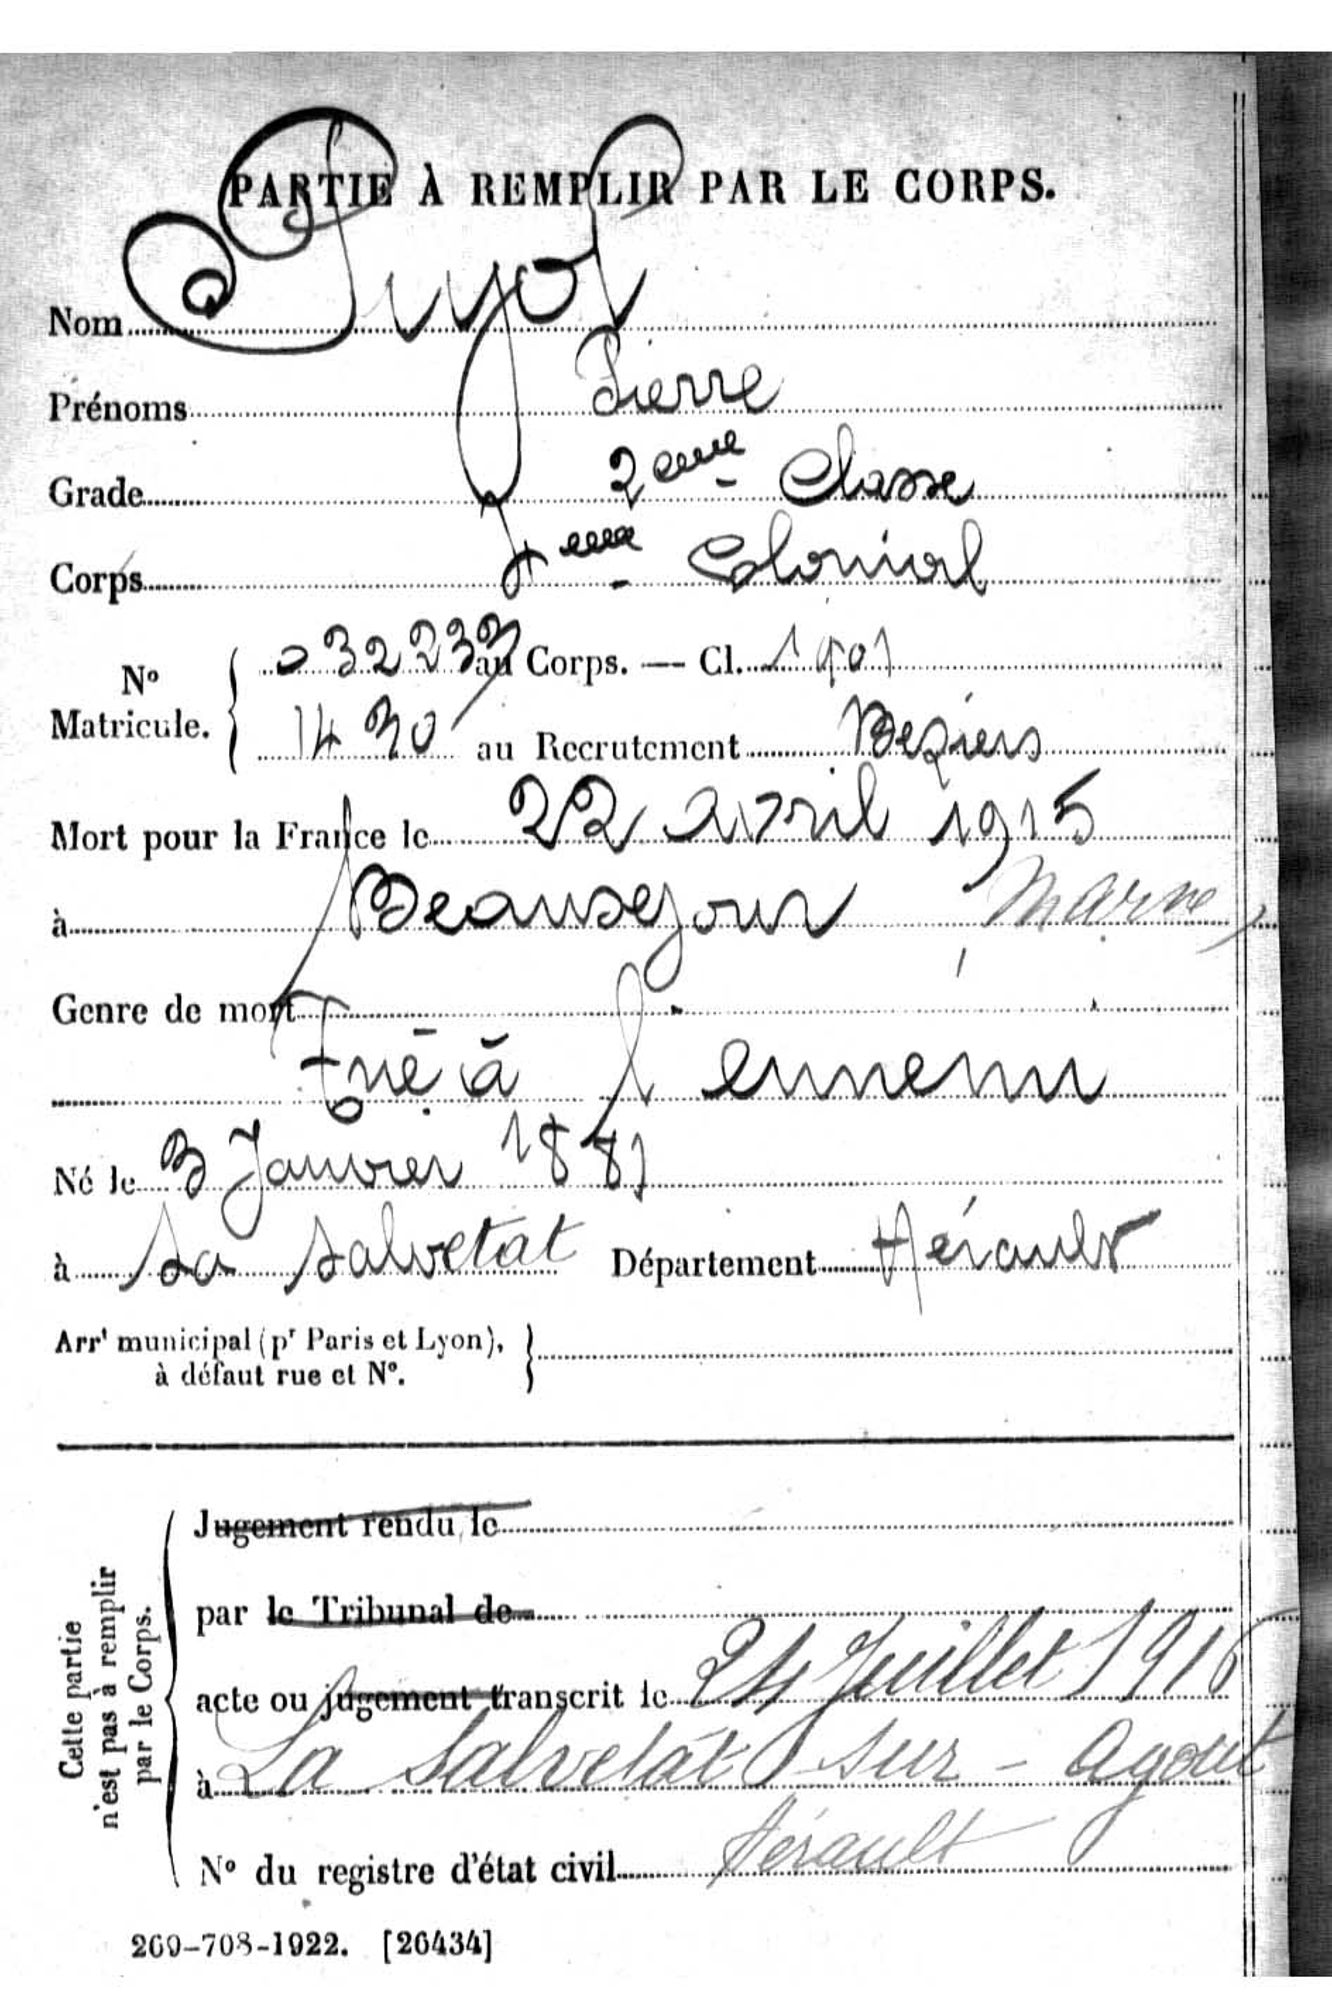 PARTIE À REMPLIR PAR LE CORPS.
Nom Pujol
Prénoms Pierre
Grade 2eme Classe
Corps 4eme Colonial
No Matricule. 032233 au Corps. — Cl. 1901
1430 au Recrutement Beziers
Mort pour la France le 22 avril 1915
à Beausejour Marne
Genre de mort
Tué à l'ennemi
Né le 3 Janvier 1881
à La Salvetat Département Hérault
Arrt municipal (pr Paris et Lyon),
à défaut rue et No.
Cette partie n'est pas à remplir par le Corps.
Jugement rendu le
par le Tribunal de
acte ou jugement transcrit le 24 Juillet 1916
à La Salvetat sur - Agout
Hérault
No du registre d'état civil
269-708-1922. [26434]